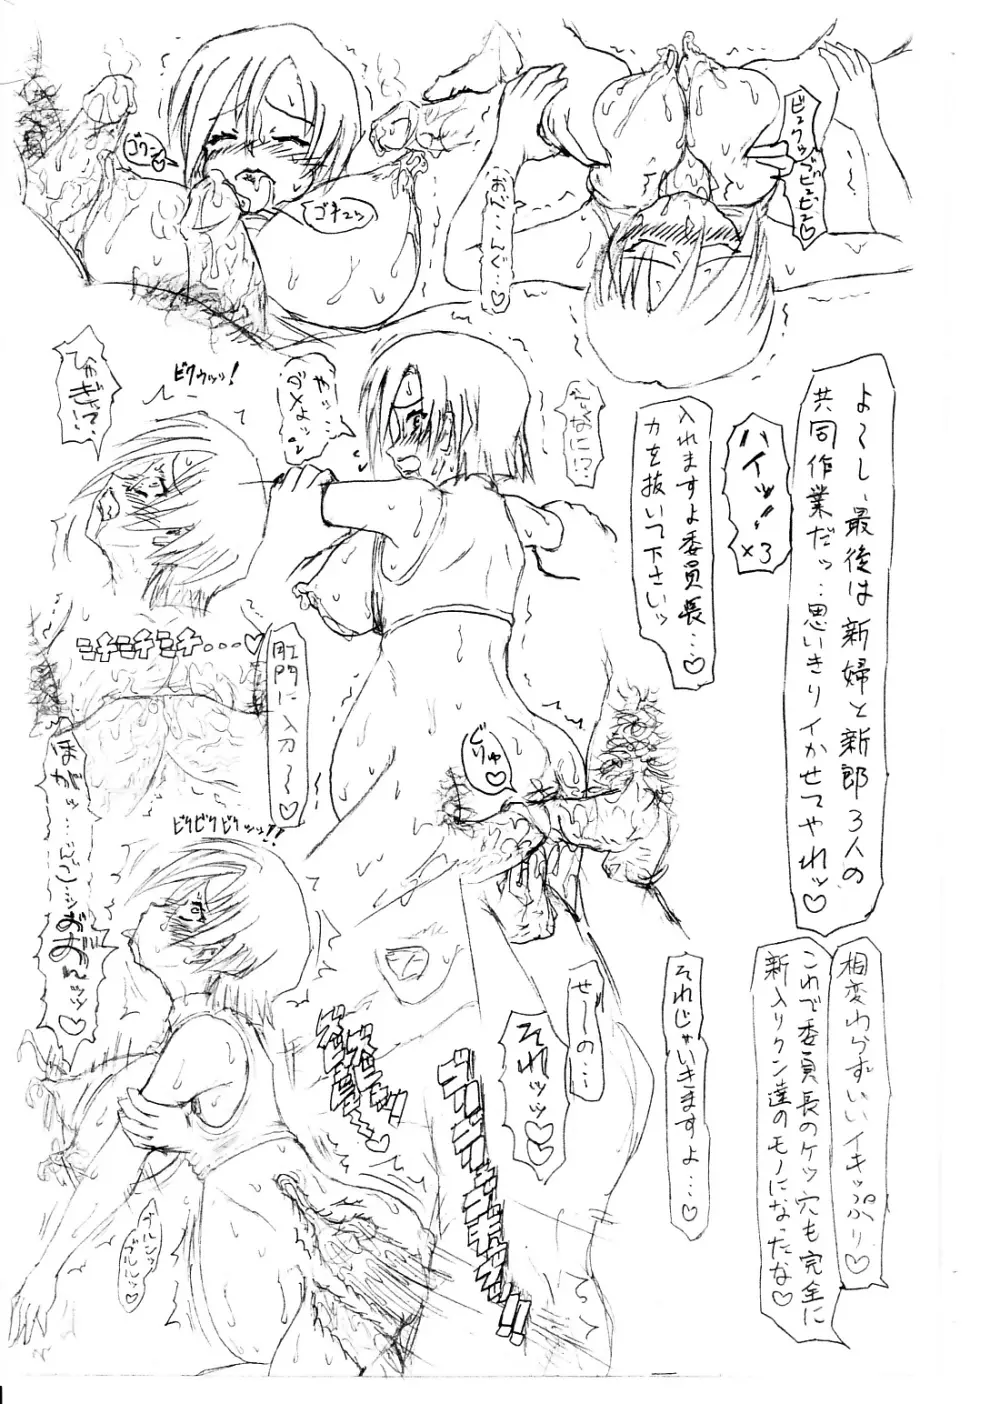 ゴクン♡
ゴキュッ
おぐ・んぐ…♡
ビュクッブビュビュ♡
よ〜し、最後は新婦と新郎3人の
共同作業だッ…思いきりイかせてやれッ♡
ハイッ!!
×3
入れますよ委員長…♡
力を抜いて下さいッ
なに!?
やっ…
ダメよッ
ビクゥッッ!
ひゃぎっ?…
ミチミチミチ…♡
肛門に入刀〜♡
ビクビクビクッッ!!
相変わらずいいイキッぷり♡
これで委員長のケツ穴も完全に
新入りクン達のモノになったな♡
それじゃいきますよ…♡
せーの…
それッッ♡